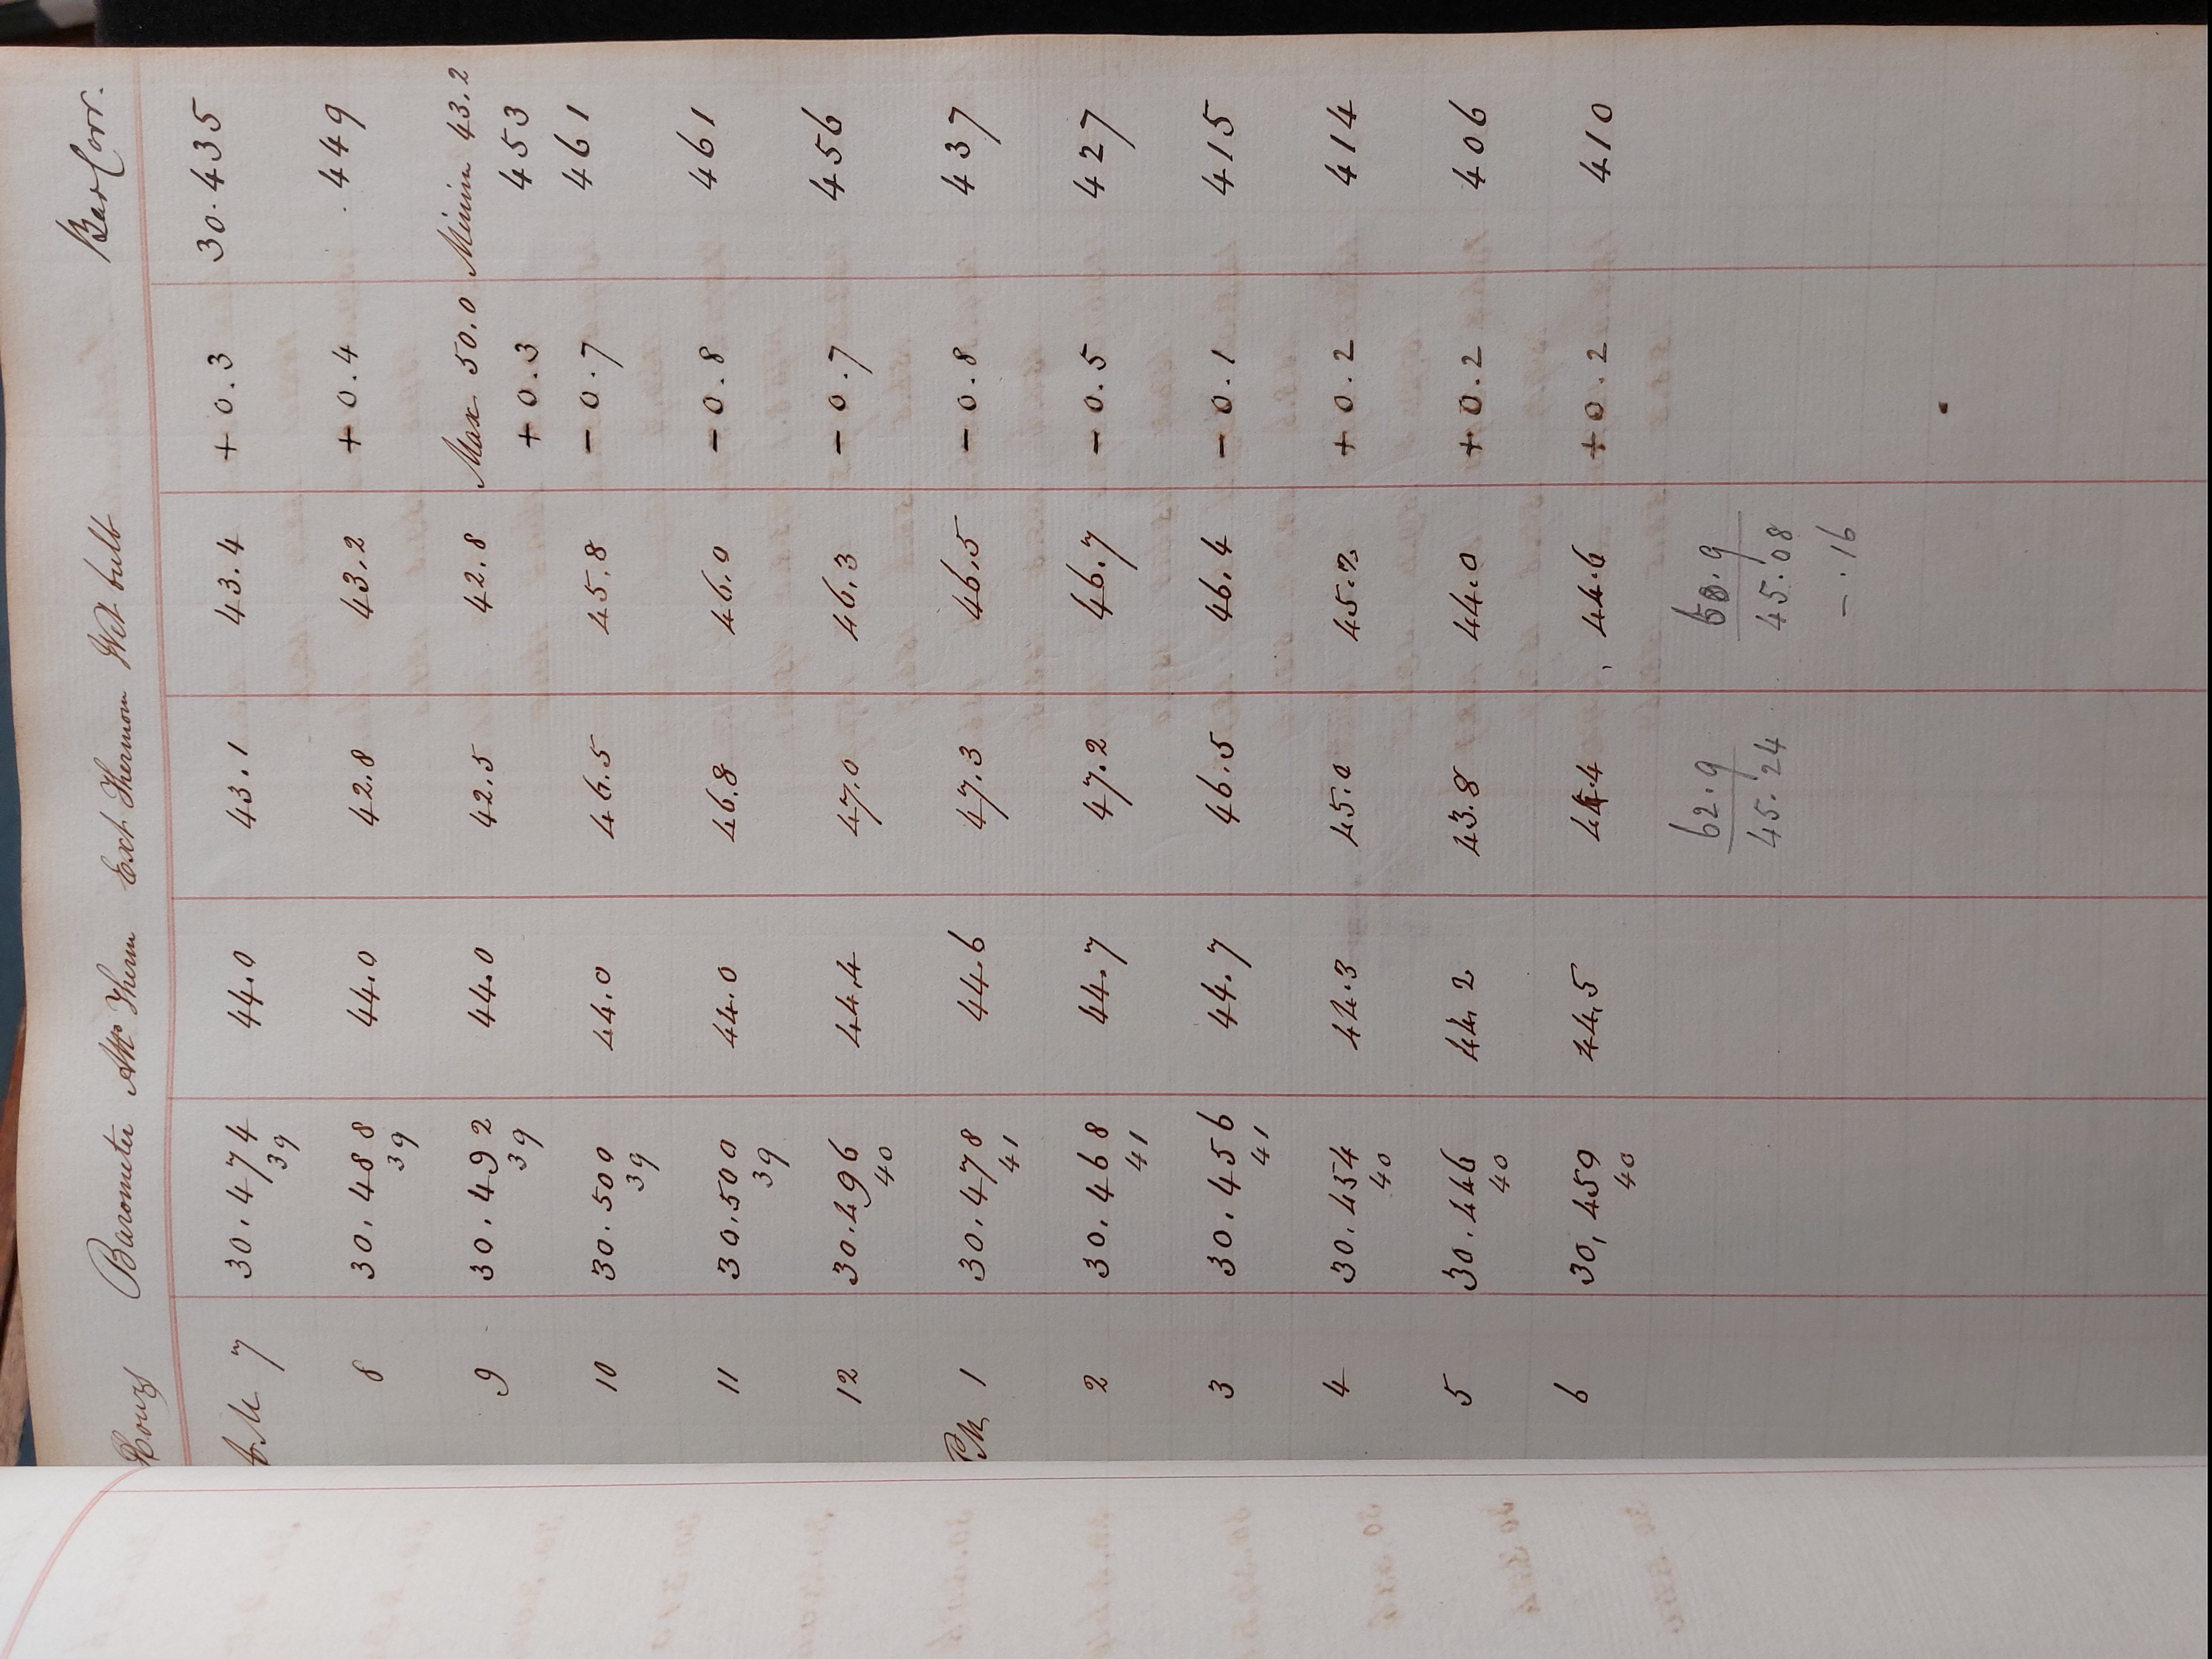 Hours Barometer Att. Therm Ext Thermom Wet bulb Bar Corr.
A.M 7 30.474 44.0 43.1 43.4 + 0.3 30.435
39
8 30.488 44.0 42.8 43.2 + 0.4 .449
39
9 30.492 44.0 42.5 42.8 Max 50.0 Minim 43.2
39 + 0.3 453
10 30.500 44.0 46.5 45.8 - 0.7 461
39
11 30.500 44.0 46.8 46.0 - 0.8 461
39
12 30.496 44.4 47.0 46.3 - 0.7 456
40
P.M 1 30.478 44.6 47.3 46.5 - 0.8 437
41
2 30.468 44.7 47.2 46.7 - 0.5 427
41
3 30.456 44.7 46.5 46.4 - 0.1 415
41
4 30.454 44.3 45.0 45.2 + 0.2 414
40
5 30.446 44.2 43.8 44.0 + 0.2 406
40
6 30,450 44,5 44.4 44.6 + 0.2 410
40
62.9 60.9
45.24 45.08
- .16